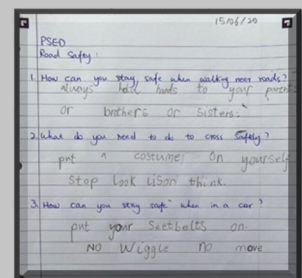 15/06/20
PSED
Road Safty:
1. How can you stay safe when walking near roads?
always hold hands to your parents
or brothers or sisters.
2. What do you need to do to cross safely?
put a costume on yourself
Stop look liSon think.
3. How can you stay safe when in a car?
put your Seetbelts on
NO Wiggle no more